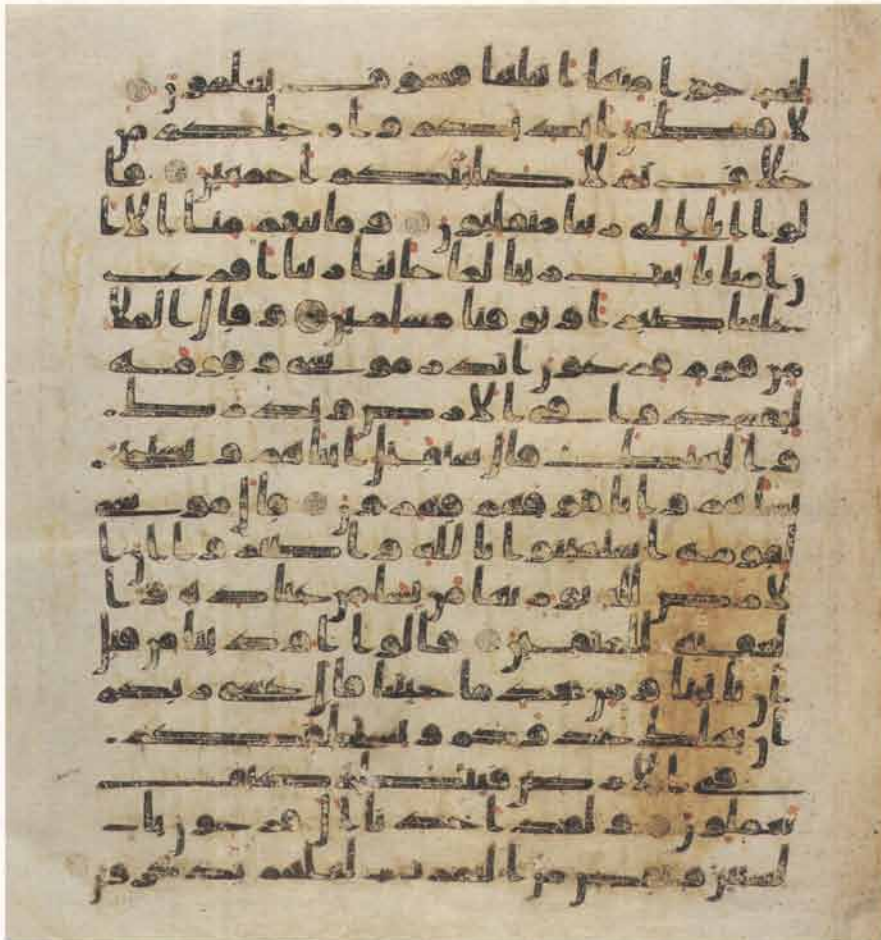 لتخرجوا منها اهلها فسوف تعلمون
لا قطعن ايديكم وارجلكم من
خلف ثم لاصلبنكم اجمعين قا
لوا انا الى ربنا منقلبون وما تنقم منا الا ا
ن امنا بايت ربنا لما جاتنا ربنا افرغ
علينا صبرا وتوفنا مسلمين وقال الملا
من قوم فرعون اتذر موسى وقومه
ليفسدوا في الارض ويذرك
والهتك قال سنقتل ابناهم ونستحي
نساهم وانا فوقهم قهرون قال موسى
لقومه استعينوا بالله واصبروا ان ا
لارض لله يورثها من يشا من عباده وا
لعقبة للمتقين قالوا اوذينا من قبل
ان تاتينا ومن بعد ما جئتنا قال عسى ربكم
ان يهلك عدوكم ويستخلفكم
في الارض فينظر كيف
تعملون ولقد اخذنا ال فرعون با
لسنين ونقص من الثمرت لعلهم يذكرون